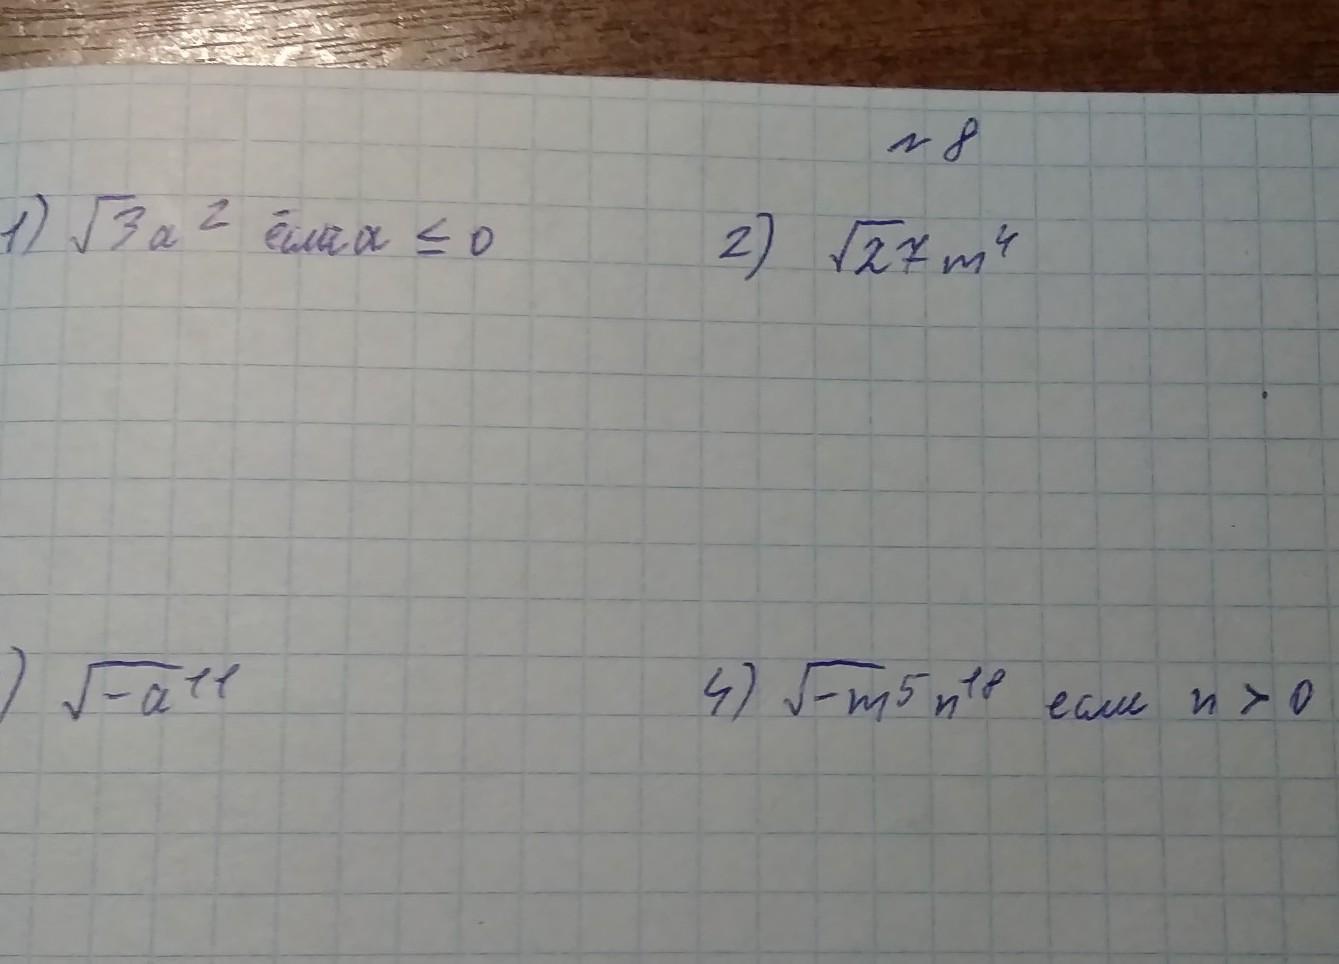 № 8
1) √3a² если a ≤ 0 2) √27m⁴
) √-a¹¹ 4) √-m⁵n¹⁸ если n > 0